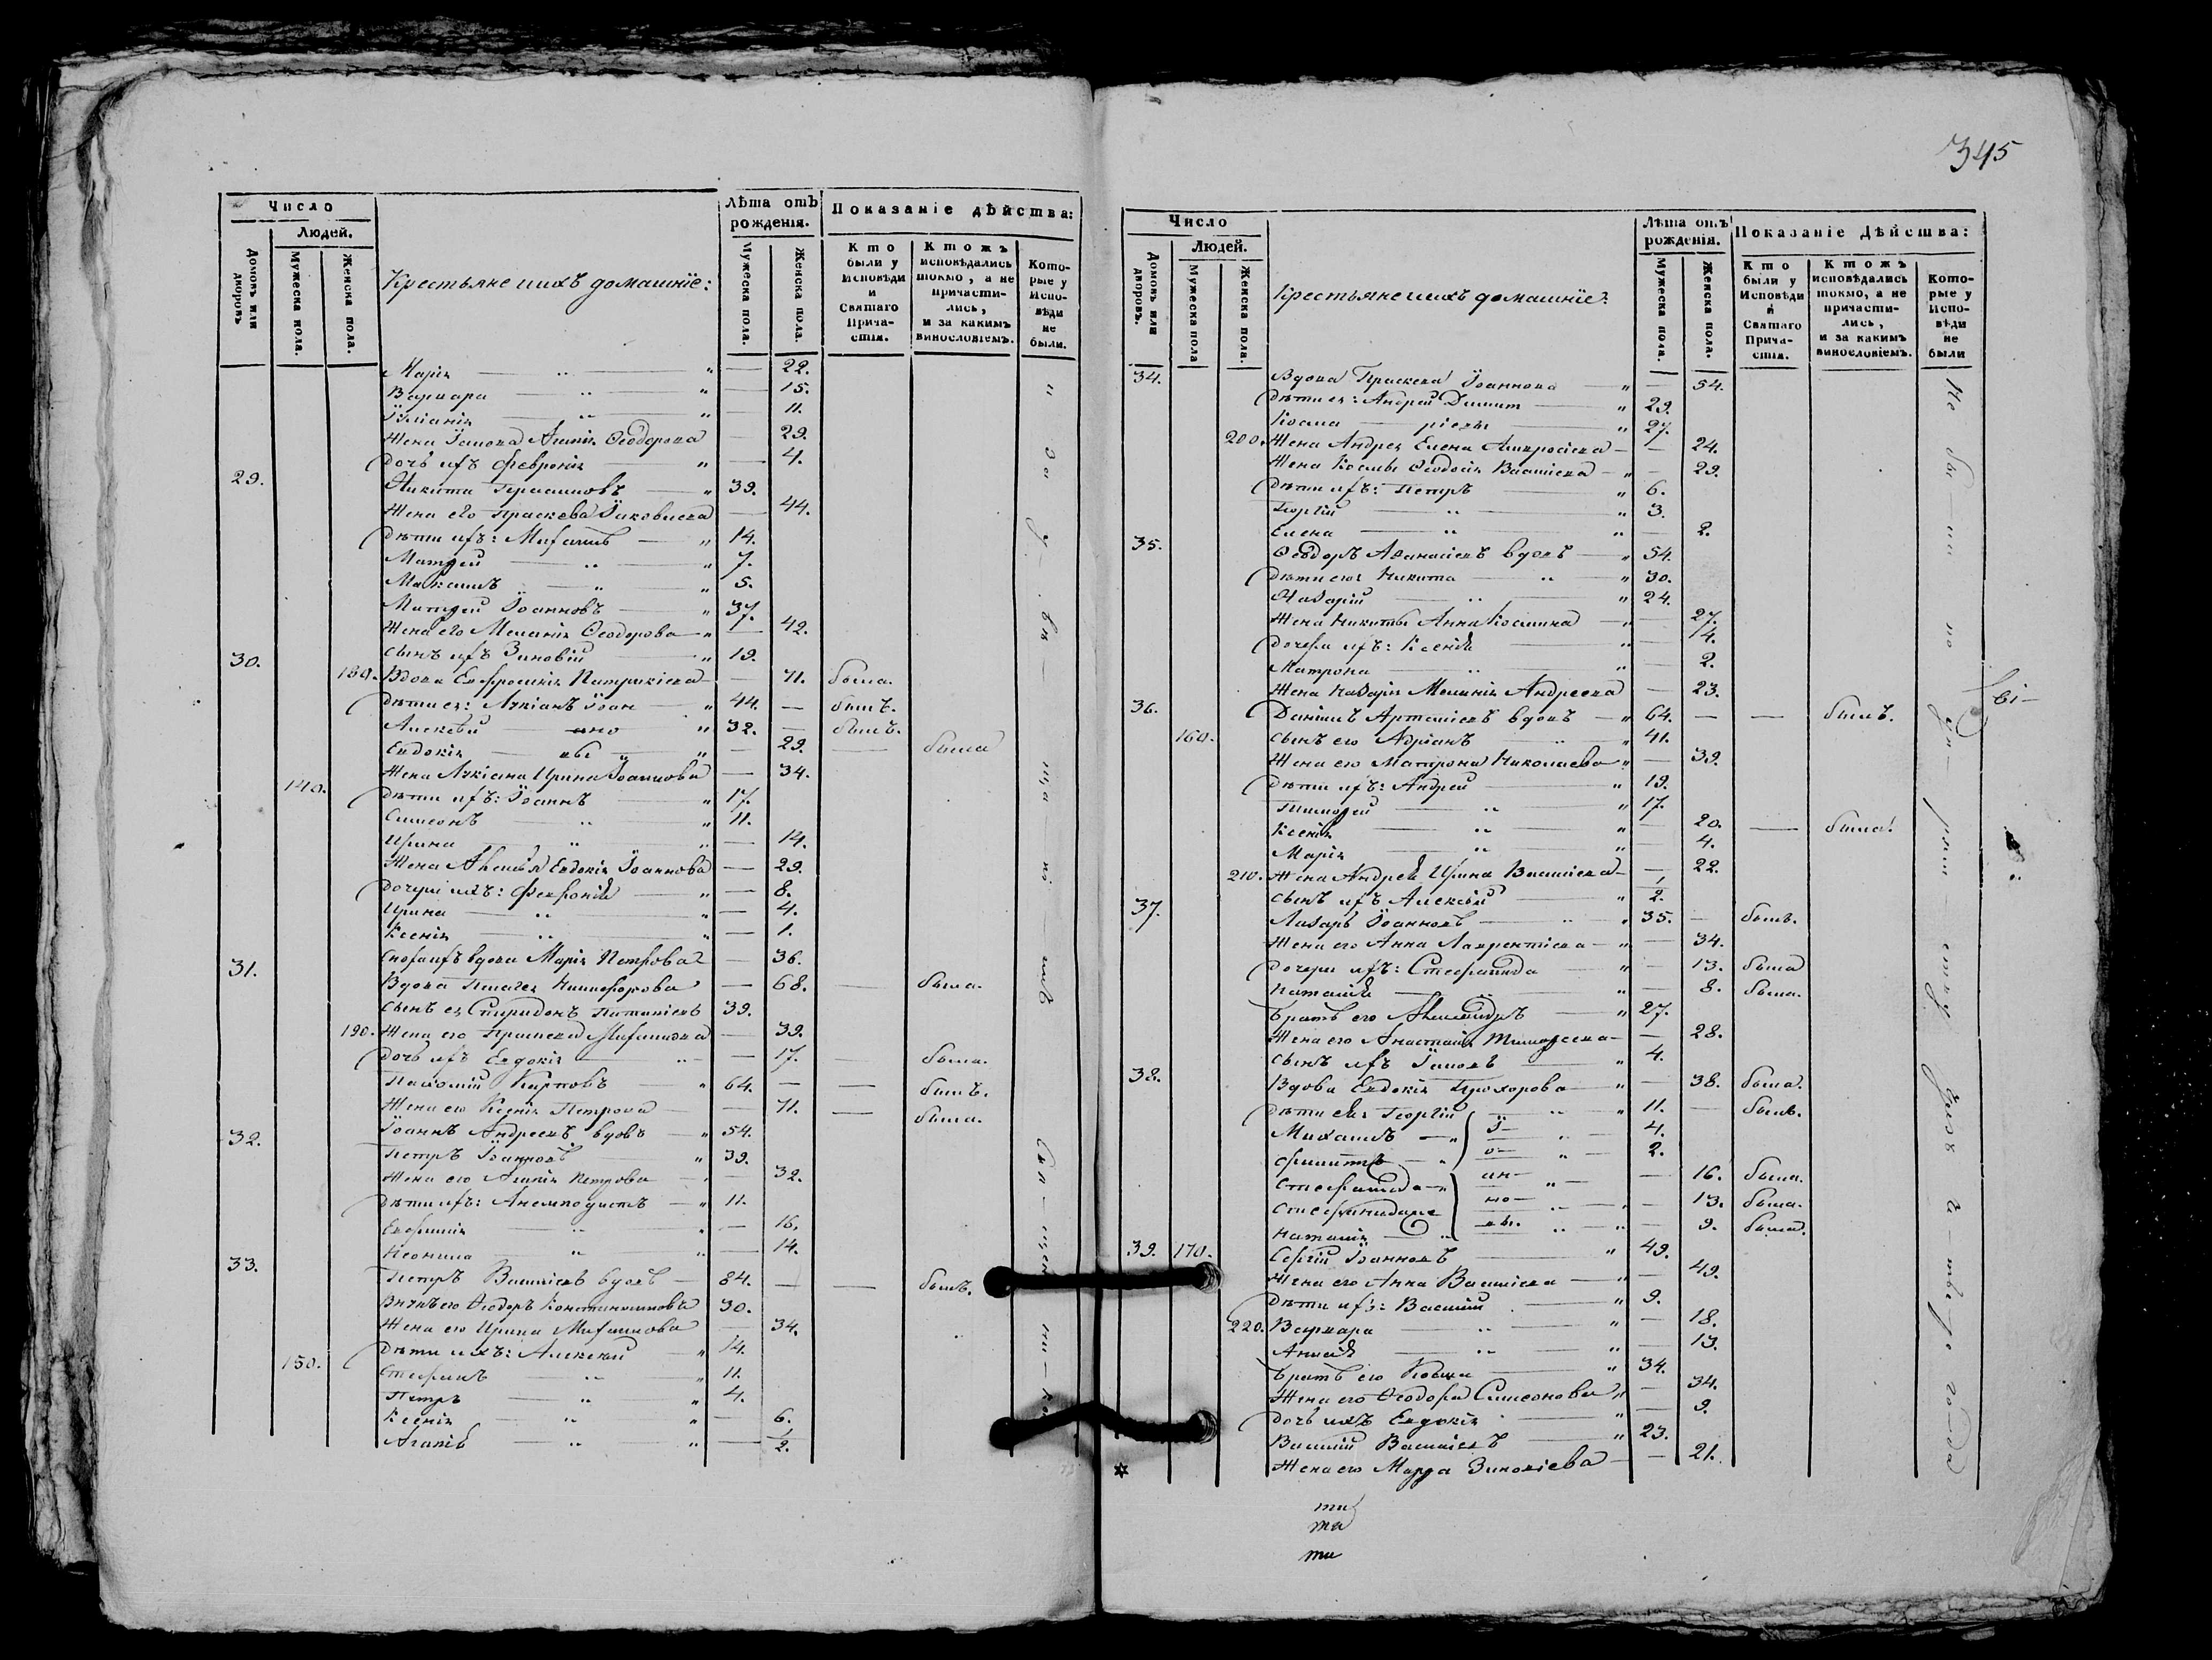 345
Число
Людей.
Домовъ или дворовъ.
Мужеска пола.
Женска пола.
Крестьяне и ихъ домашніе:
Лѣта отъ рожденія.
Мужеска пола.
Женска пола.
Показаніе дѣйства:
Кто были у Исповѣди и Святаго Причастія.
Ктожъ исповѣдались токмо, а не причастились, и за какимъ винословіемъ.
Которые у Исповѣди не были.
Марія — 22.
Варвара — 15.
Іуліанія — 11.
Жена Ѳеодорова — 29.
Дочь ихъ Февронія — 4.
29. Никита Герасимовъ 39.
Жена его Праскева Іаковлева — 44.
Дѣти ихъ: Михаилъ 14.
Матѳей 7.
Максимъ 5.
Матѳей Іоанновъ 37.
Жена его Меланія Ѳеодорова — 42.
Сынъ ихъ Зиновій 19.
30. 180. Вдова Евфросинія Патрикіева — 71. была.
Дѣти ея: Лукіанъ Іоан 44. — былъ.
Алексѣй но 32. — былъ.
Евдокія вы — 29. — была
Жена Лукіана Ирина Іоаннова — 34.
140. Дѣти ихъ: Іоаннъ 17.
Симеонъ 11.
Ирина — 14.
Жена Алексѣя Евдокія Іоаннова — 29.
Дочери ихъ: Февронія — 8.
Ирина — 4.
Ксенія — 1.
Сноха ихъ вдова Марія Петрова — 36.
31. Вдова Пелагея Никифорова — 68. — была.
Сынъ ея Спиридонъ 39.
190. Жена его Праскева Михаилова — 39.
Дочь ихъ Евдокія — 17. — была.
Пахомій Карповъ 64. — — былъ.
Жена его Ксенія Петрова — 71. — была.
32. Іоаннъ Андреевъ вдовъ 54.
Петръ Іоанновъ 39.
Жена его Агапія Петрова — 32.
Дѣти ихъ: Анемподистъ 11.
Евфимія — 16.
Неонила — 14.
33. Петръ Василіевъ вдовъ 84. — — былъ.
Внукъ его Ѳеодоръ Константиновъ 30.
Жена его Ирина Михаилова — 34.
Дѣти ихъ: Алексѣй 14.
150. Стефанъ 11.
Петръ 4.
Ксенія — 6.
Агапія — 1/2.
Число
Людей.
Домовъ или дворовъ.
Мужеска пола
Женска пола.
Крестьяне и ихъ домашніе:
Лѣта отъ рожденія.
Мужеска пола.
Женска пола.
Показаніе Дѣйства:
Кто были у Исповѣди и Святаго Причастія.
Ктожъ исповѣдались токмо, а не причастились, и за какимъ винословіемъ.
Которые у Исповѣди не были
34. Вдова Праскева Іоаннова — 54.
Дѣти ея: Андрей Димит 29.
Косма ріевы 27.
200. Жена Андрея Елена Амвросіева — 24.
Жена Космы Ѳеодосія Василіева — 29.
Дѣти ихъ: Петръ 6.
Георгій 3.
Елена — 2.
35. Ѳеодоръ Аѳанасіевъ вдовъ 54.
Дѣти его: Никита 30.
Назарій 24.
Жена Никиты Анна Космина — 27.
Дочери ихъ: Ксенія — 4.
Матрона — 2.
Жена Назарія Меланія Андреева — 23.
36. Даніилъ вдовъ 64. — — былъ.
160. Сынъ его Адріанъ 41.
Жена его Матрона Николаева — 39.
Дѣти ихъ: Андрей 19.
Тимоѳей 17.
Ксенія — 20. — была.
Марія — 4.
210. Жена Андрея Ирина Василіева — 22.
Сынъ ихъ Алексѣй 1/2.
37. Лазарь Іоанновъ 35. — былъ.
Жена его Анна Лаврентіева — 34.
Дочери ихъ: Стефанида — 13. была
Наталія — 8. была.
Братъ его Александръ 27.
Жена его Анастасія Тимоѳеева — 28.
Сынъ ихъ Іаковъ 4.
38. Вдова Евдокія Прохорова — 38. была.
Дѣти ея: Георгій 11. — былъ.
Михаилъ І— 4.
Филиппъ о— 2.
Стефанида ан— — 16. была.
Стефанида но— — 13. была.
Наталія вы. — 9. была.
39. 170. Сергій Іоанновъ 49.
Жена его Анна Василіева — 49.
Дѣти ихъ: Василій 9.
220. Варвара — 18.
Анисія — 13.
Братъ его Косма 34.
Жена его Ѳеодора Симеонова — 34.
Дочь ихъ Евдокія — 9.
Василій Василіевъ 23.
Жена его Марѳа Зиновіева — 21.
ти
та
ти